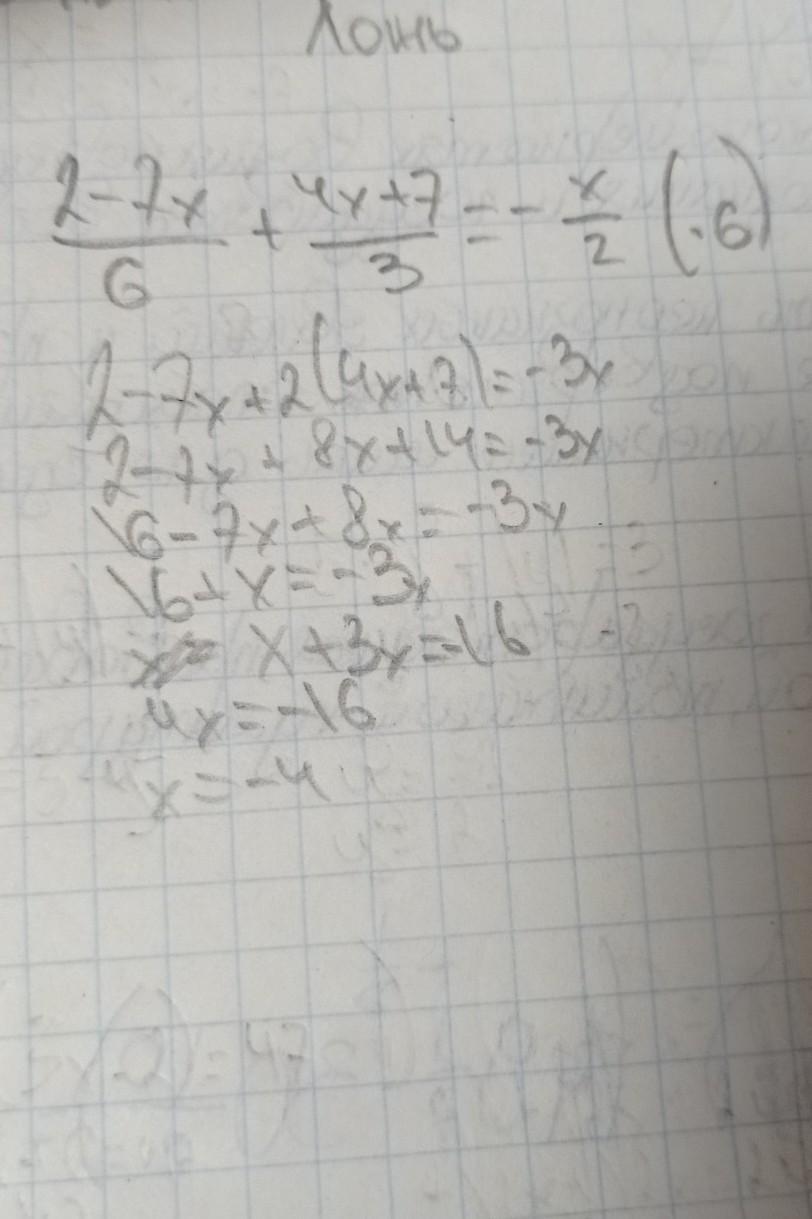 Ложь
2-7x/6 + 4x+7/3 = - x/2 (·6)
2-7x+2(4x+7)=-3x
2-7x+8x+14=-3x
16-7x+8x=-3x
16+x=-3x
x+3x=-16
4x=-16
x=-4